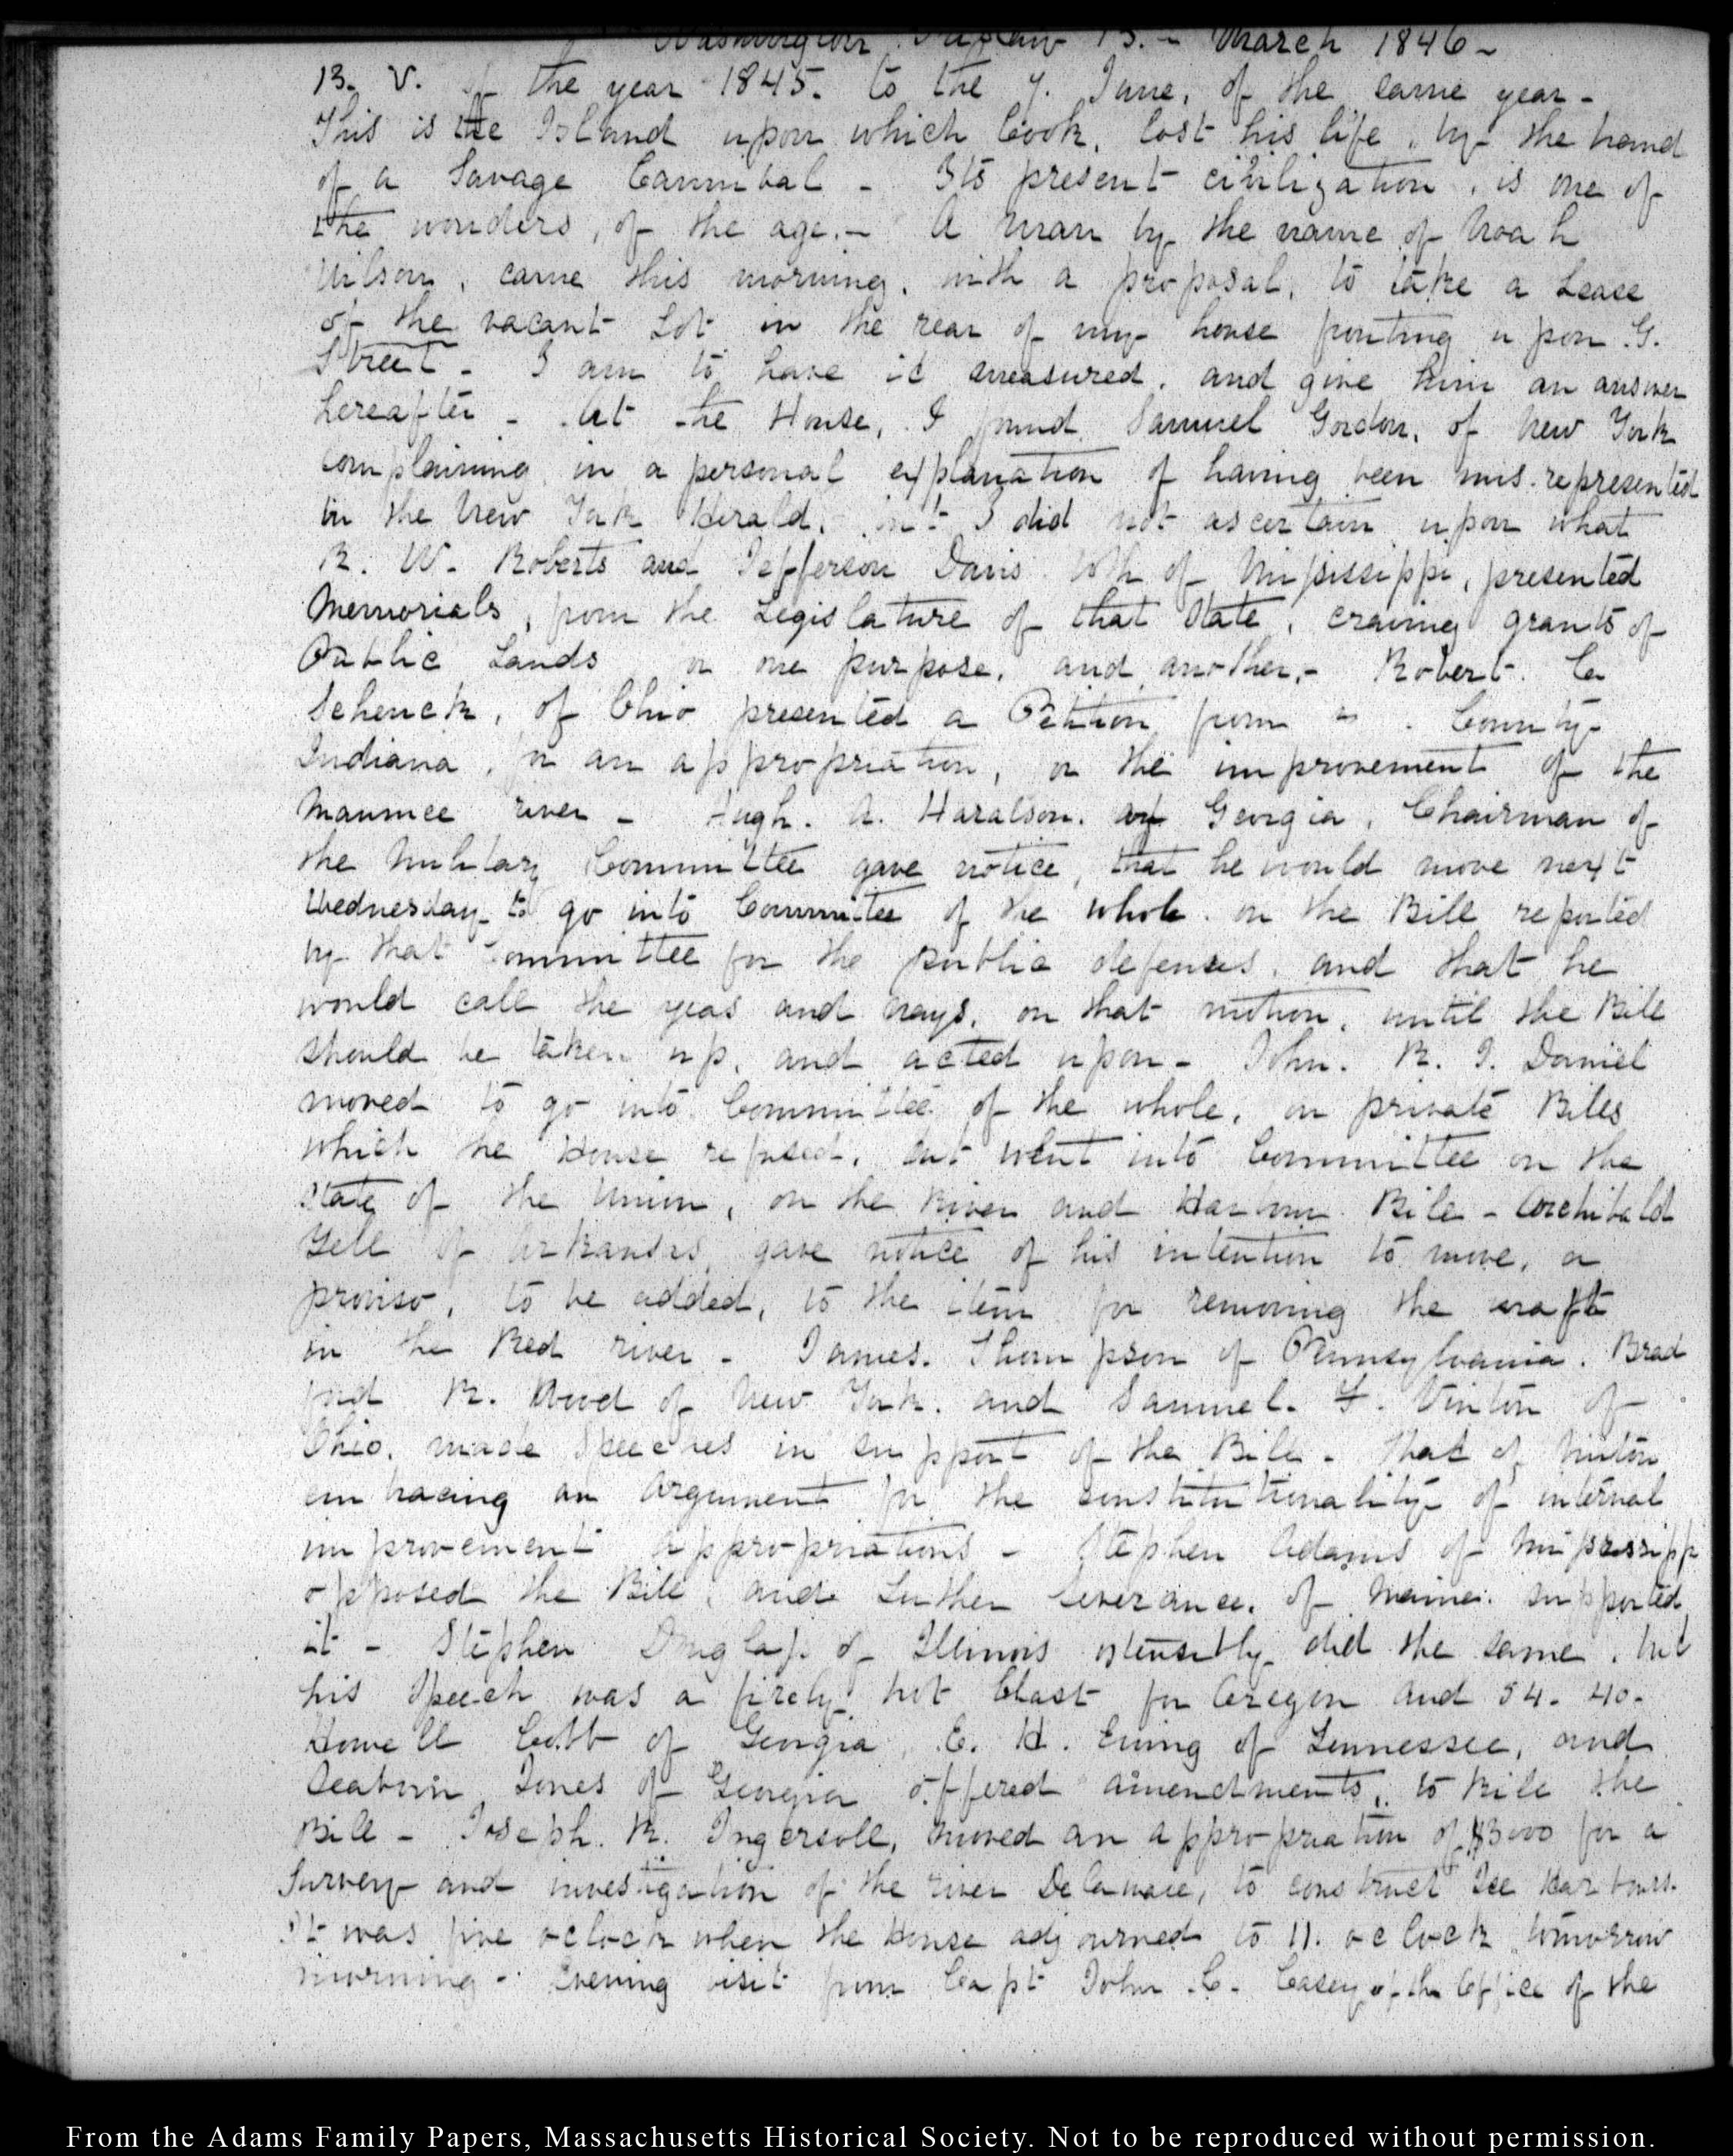 Washington Friday 13.- March 1846-
13. V. of the year 1845. to the 7. June, of the same year-
This is the Island upon which Cook, lost his life, by the hand
of a Savage Cannibal - Its present civilization, is one of
the wonders, of the age.- A man by the name of Noah
Wilson, came this morning, with a proposal, to take a Lease
of the vacant Lot in the rear of my house fronting upon G.
Street - I am to have it measured, and give him an answer
hereafter - At the House, I found Samuel Gordon, of New York
complaining in a personal explanation of having been mis-represented
in the New York Herald, but I did not ascertain upon what
R. W. Roberts and Jefferson Davis both of Mississippi, presented
Memorials, from the Legislature of that State, craving grants of
Public Lands for one purpose, and another,- Robert. C.
Schenck, of Ohio presented a Petition from County-
Indiana, for an appropriation, for the improvement of the
Maumee river - Hugh. A. Haralson. of Georgia, Chairman of
the Military Committee gave notice, that he would move next
Wednesday to go into Committee of the whole on the Bill reported
by that Committee for the public defences, and that he
would call the yeas and nays, on that motion, until the Bill
should be taken up, and acted upon - John. R. J. Daniel
moved to go into Committee of the whole, on private Bills
which the House refused, but went into Committee on the
state of the Union, on the River and Harbour Bill - Archibald
Yell of Arkansas gave notice of his intention to move, a
proviso, to be added, to the item for removing the raft
in the Red river - James. Thompson of Pennsylvania. Brad
ford R. Wood of New York. and Samuel. F. Vinton of
Ohio. made Speeches in support of the Bill - that of Vinton
embracing an Argument for the constitutionality of internal
improvement appropriations - Stephen Adams of Mississippi
opposed the Bill, and Luther Severance. of Maine. supported
it - Stephen Douglass of Illinois ostensibly did the same, but
his Speech was a firely hot blast for Oregon and 54. 40.
Howell Cobb of Georgia, E. H. Ewing of Tennessee, and
Seaborn Jones of Georgia offered amendments, to kill the
Bill - Joseph. R. Ingersoll, moved an appropriation of $3000 for a
Survey and investigation of the river Delaware, to construct Ice Harbours.
It was five oclock when the House adjourned to 11. oclock tomorrow
morning - Evening visit from Capt John. C. Casey of the Office of the
From the Adams Family Papers, Massachusetts Historical Society. Not to be reproduced without permission.